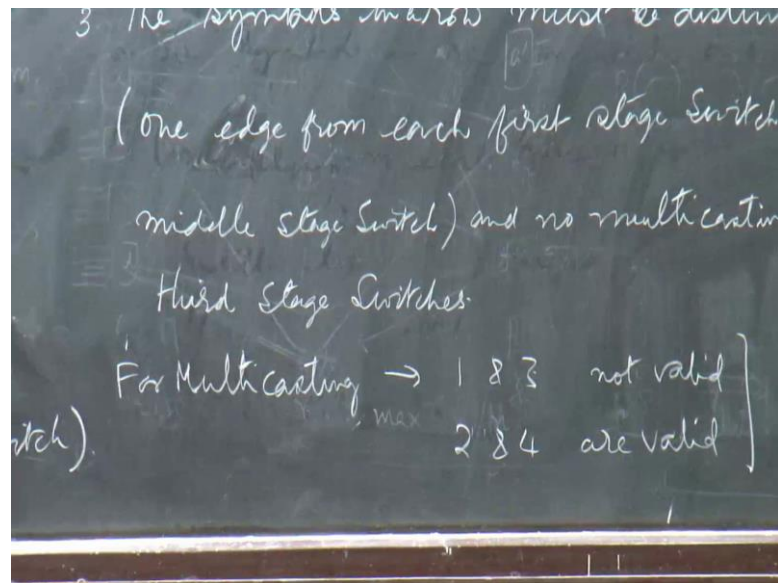 3 The symbols in a row must be distin
(one edge from each first stage Switch
middle stage Switch) and no multicastin
third stage Switches.
For Multicasting → 1 & 3 not valid
itch). max 2 & 4 are valid